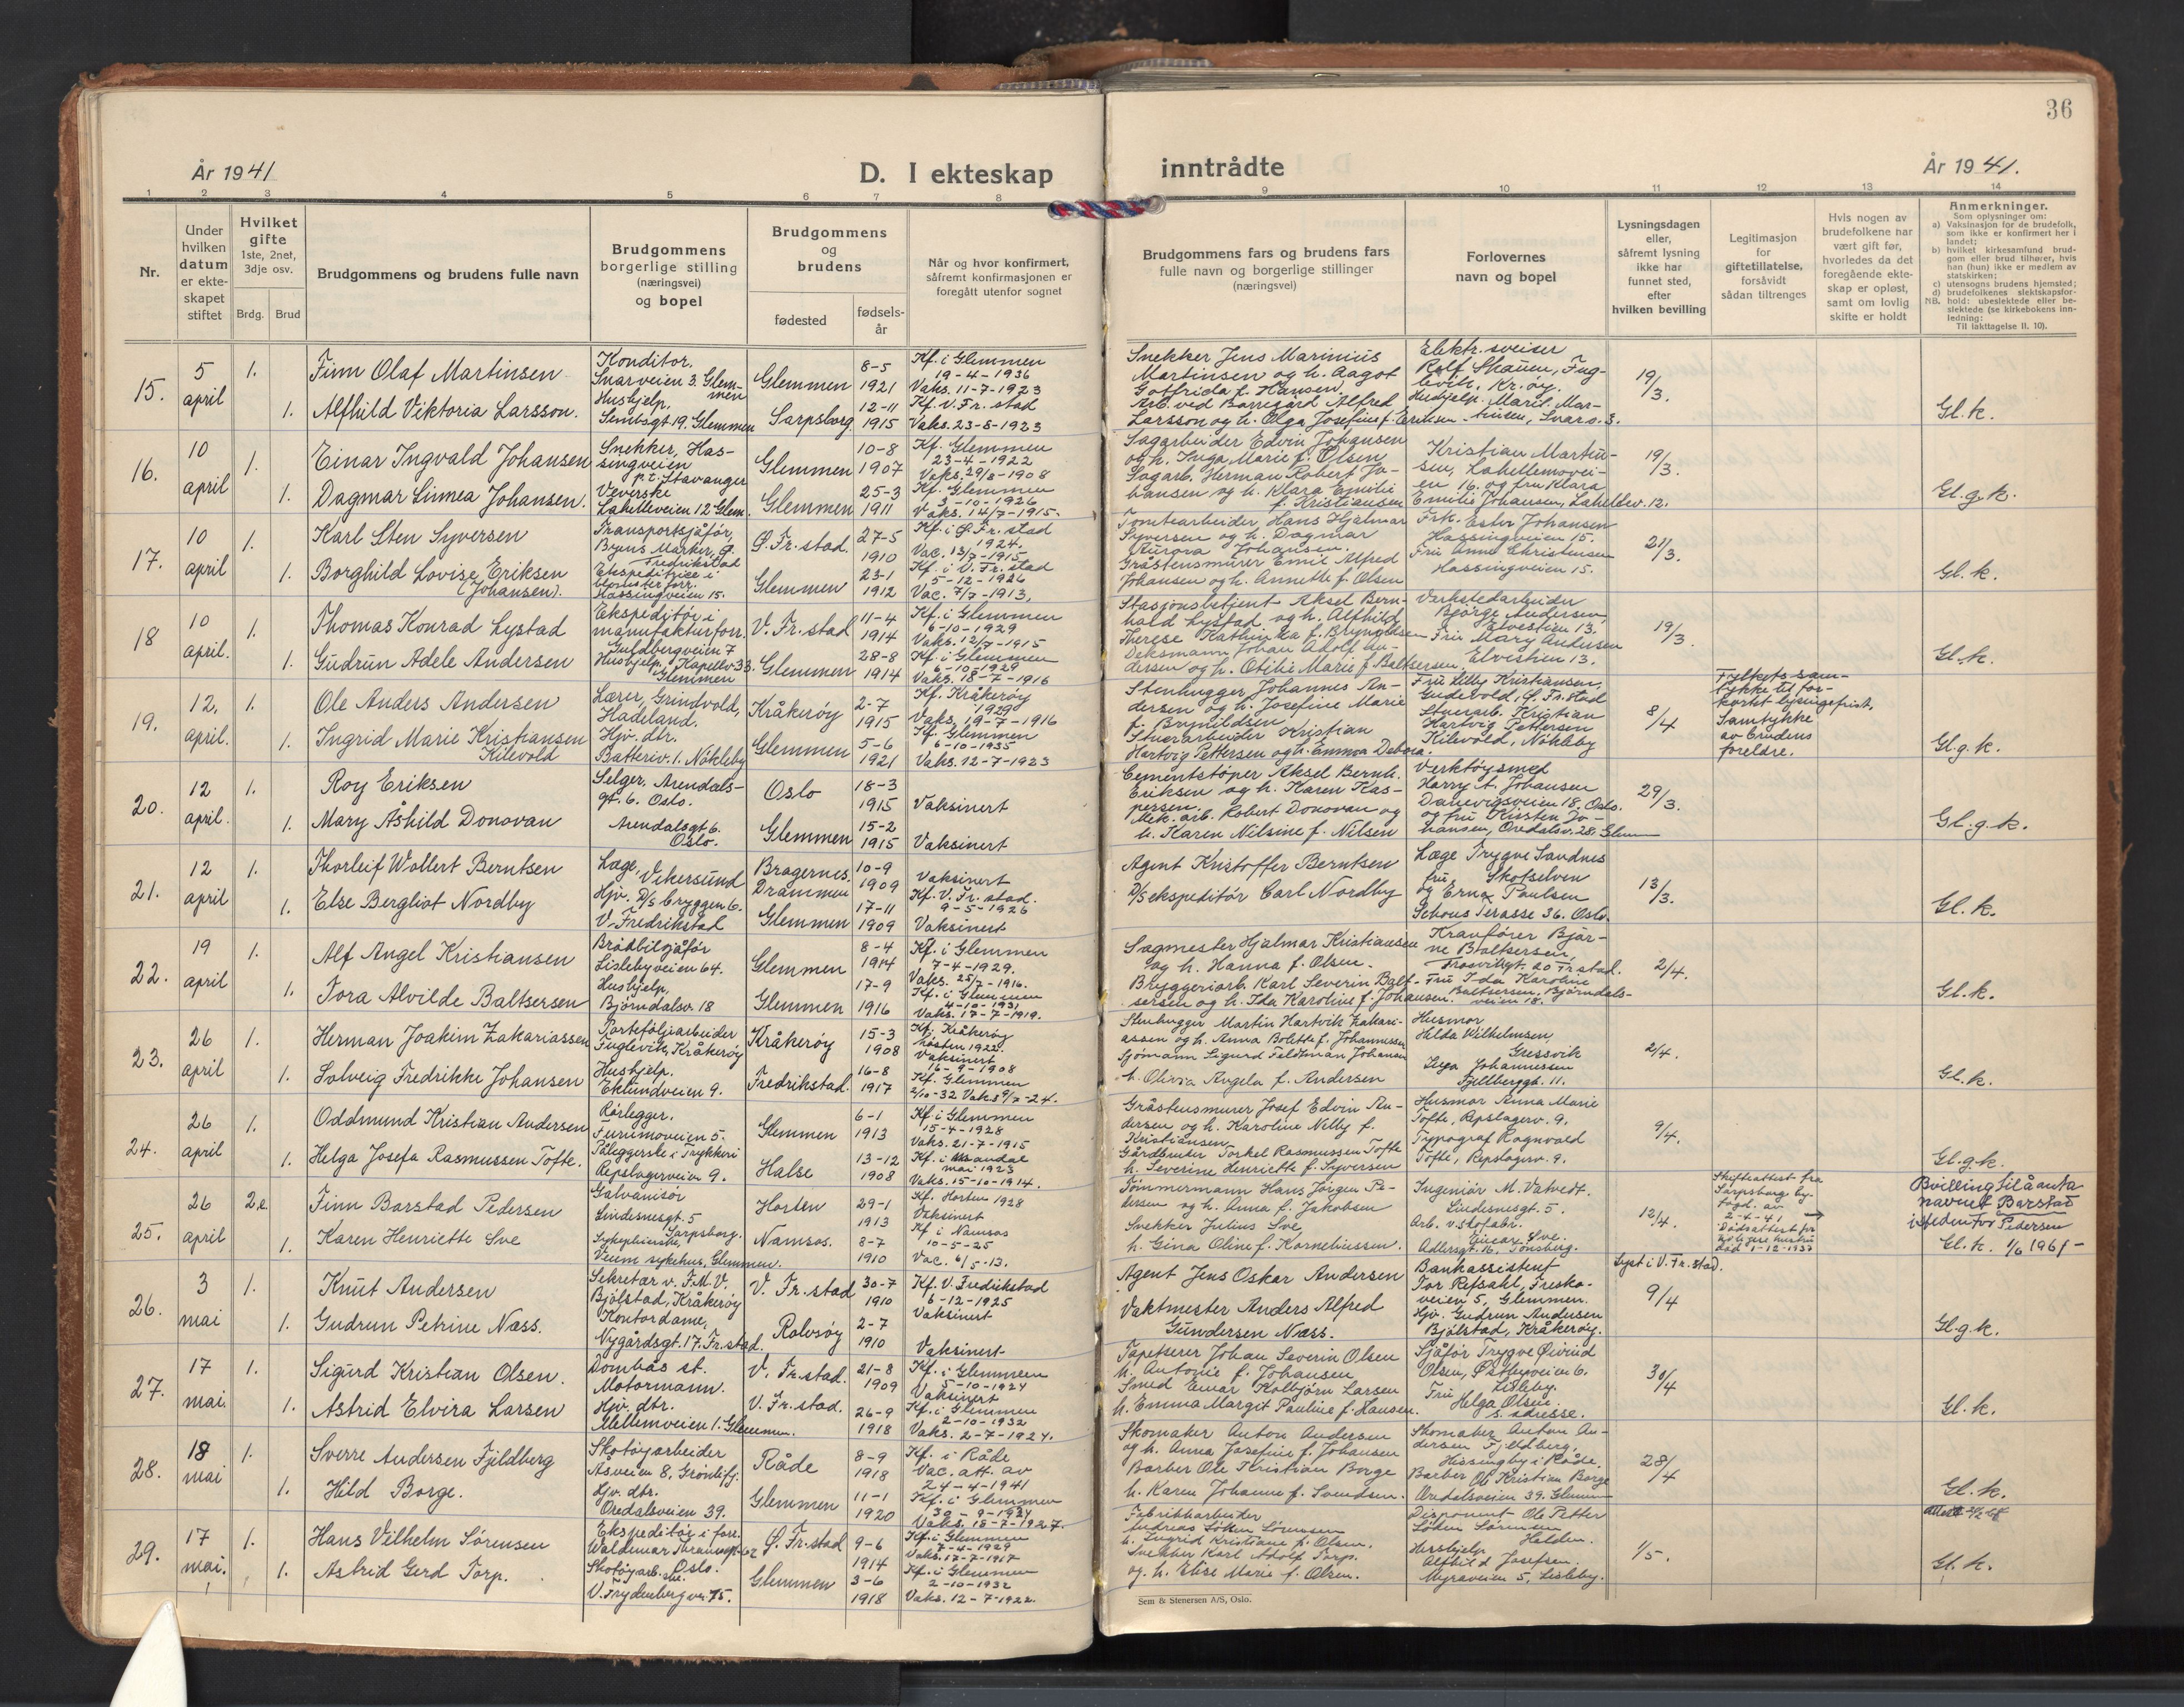 36
År 1941
D. I ekteskap
inntrådte
År 1941.
1 2 3 4 5 6 7 8 9 10 11 12 13 14
Nr.
Under
hvilken
datum
er ekte-
skapet
stiftet
Hvilket
gifte
1ste, 2net,
3dje osv.
Brdg. Brud
Brudgommens og brudens fulle navn
Brudgommens
borgerlige stilling
(næringsvei)
og bopel
Brudgommens
og
brudens
fødested
fødsels-
år
Når og hvor konfirmert,
såfremt konfirmasjonen er
foregått utenfor sognet
Brudgommens fars og brudens fars
fulle navn og borgerlige stillinger
(næringsvei)
Forlovernes
navn og bopel
Lysningsdagen
eller,
såfremt lysning
ikke har
funnet sted,
efter
hvilken bevilling
Legitimasjon
for
giftetillatelse,
forsåvidt
sådan tiltrenges
Hvis nogen av
brudefolkene har
vært gift før,
hvorledes da det
foregående ekte-
skap er opløst,
samt om lovlig
skifte er holdt
Anmerkninger.
Som oplysninger om:
a) Vaksinasjon for de brudefolk,
som ikke er konfirmert her i
landet;
b) hvilket kirkesamfund brud-
gom eller brud tilhører, hvis
han (hun) ikke er medlem av
statskirken;
c) utensogns brudens hjemsted;
d) brudefolkenes slektskapsfor-
NB. hold: ubeslektede eller be-
slektede (se kirkebokens inn-
ledning:
Til iakttagelse II. 10).
15.
5
april
1.
Finn Olaf Martinsen
Konditor.
Snarveien 3. Glem-
men
Glemmen
8-5
1921
Kf. i Glemmen
19-4-1936
Vaks. 11-7-1923
1.
Alfhild Viktoria Larsson.
Hushjelp.
Glemmen
Sarpsborg
12-11
1915
Kf. V. Fr. stad
Vaks. 23-8-1923
Snekker Jens Marinius
Martinsen og h. Aagot
Gotfrida f. Hansen.
Arb. ved Borregård Alfred
Larsson og h. Olga Josefine f. Eriksen
Elektr. sveiser
Rolf Skauen, Fug-
levik, Kr. øy.
19/3.
Gl. k.
16.
10
april
1.
Einar Ingvald Johansen
Snekker, Has-
singveien
p.t. Stavanger
Glemmen
10-8
1907
Kf. Glemmen
23-4-1922
Vaks. 29/8-1908
1.
Dagmar Linnea Johansen.
Veverske
Lahelleveien 12 Glem.
Glemmen
25-3
1911
Kf. Glemmen
3-10-1926
Vaks. 14/7-1915.
Sagarbeider Edvin Johansen
og h. Inga Marie f. Olsen
Sagarb. Herman Robert Jo-
hansen og h. Klara Emilie
f. Kristiansen
Kristian Martin-
sen, Lahellemovei-
en 16. og fru Klara
Emilie Johansen, Lahellev. 12.
19/3.
Gl. g. k.
17.
10
april
1.
Karl Sten Syversen
Transportsjåfør,
Byens Marker, Ø.
Fredrikstad
Ø. Fr. stad.
27-5
1910
Kf. i Ø. Fr. stad
1924.
Vac. 13/7-1915
1.
Borghild Lovise Eriksen
(Johansen).
Ekspeditrise i
blomsterforr.
Hassingveien 15.
Glemmen
23-1
1912
Kf. i V. Fr. stad
5-12-1926
Vac. 7/7-1913.
Tomtearbeider Hans Hjalmar
Syversen og h. Dagmar
Aurora Johansen.
Gråstensmurer Emil Alfred
Johansen og h. Annette f. Olsen
Frk. Ester Johansen
Hassingveien 15.
Fru Anna Christensen
Hassingveien 15.
21/3.
Gl. k.
18
10
april.
1.
Thomas Konrad Lystad
Ekspeditør i
manufakturforr.
Guldbergveien 7
V. Fr. stad
11-4
1914
Kf. i Glemmen
6-10-1929
Vaks. 12/7-1915
1.
Gudrun Adele Andersen
Hushjelp, Kapellv 33.
Glemmen
Glemmen
28-8
1914
Kf. i Glemmen
6-10-1929
Vaks. 18-7-1916
Stasjonsbetjent Aksel Bern-
hald Lystad og h. Alfhild
Therese Kathinka f. Brynildsen
Deksmann Johan Adolf An-
dersen og h. Otilie Marie f. Baltsersen
Verkstedarbeider
Bjørge Andersen,
Elvestien 13.
Fru Mary Andersen
Elvestien 13.
19/3.
Gl. k.
19.
12.
april.
1.
Ole Anders Andersen
Lærer, Grindvold,
Hadeland.
Kråkerøy
2-7
1915
Kf. Kråkerøy
1929
Vaks. 19-7-1916
1.
Ingrid Marie Kristiansen
Kilevold
Hjv. dtr.
Batteriv. 1. Nøkleby
Glemmen
5-6
1921
Kf. Glemmen
6-10-1935
Vaks. 12-7-1923
Stenhugger Johannes An-
dersen og h. Josefine Marie
f. Brynildsen
Stuerarbeider Kristian
Hartvig Pettersen og h. Emma Debora.
Fru Lilly Kristiansen,
Gudevold, Ø. Fr. stad
Stuerarb. Kristian
Hartvig Pettersen
Kilevold, Nøkleby
8/4
Fylkets sam-
tykke til for-
kortet lysingsfrist,
Samtykke
av brudens
foreldre.
Gl. g. k.
20.
12
april.
1.
Roy Eriksen
Selger, Arendals-
gt. 6. Oslo.
Oslo
18-3
1915
Vaksinert
1.
Mary Åshild Donovan
Arendalsgt 6.
Oslo.
Glemmen
15-2
1915
Vaksinert
Cementstøper Aksel Bernh.
Eriksen og h. Karen Kas-
persen.
Mek. arb. Robert Donovan og
h. Karen Nilsine f. Nilsen
Verktøysmed
Harry A. Johansen
Danevigsveien 18. Oslo.
og fru Kirsten Jo-
hansen, Oredalsv. 28. Glem
29/3.
Gl. g. k.
21.
12
april
1.
Thorleif Wollert Berntsen
Læge,
Vikersund
Bragernes.
Drammen
10-9
1909
Vaksinert
1.
Else Bergliot Nordby
Hjv. D/S bryggen 6.
V. Fredrikstad
Glemmen
17-11
1909
Kf. V. Fr. stad.
9-5-1926
Vaksinert
Agent Kristoffer Berntsen
D/S ekspeditør Carl Nordby
Læge Trygve Sandnes
Skotselven
og fru Erna Paulsen
Schous Terasse 36. Oslo.
13/3.
Gl. k.
22.
19
april
1.
Alf Angel Kristiansen
Brødbilsjåfør
Lislebyveien 64.
Glemmen
8-4
1914
Kf. i Glemmen
7-4-1929.
Vaks. 25/7-1916.
1.
Tora Alvilde Baltsersen
Hushjelp,
Bjørndalsv. 18
Glemmen
17-9
1916
Kf. i Glemmen
4-10-1931
Vaks. 17-7-1919.
Sagmester Hjalmar Kristiansen
og h. Hanna f. Olsen.
Bryggeriarb. Karl Severin Balt-
sersen og h. Ida Karoline f. Johansen.
Kranfører Bjar-
ne Baltsersen,
Trosvikgt. 20 Fr. stad.
Fru Ida Karoline
Baltsersen, Bjørndals-
veien 18.
2/4.
Gl. k.
23.
26
april
1.
Herman Joakim Zakariassen
Porteføljearbeider
Fuglevik, Kråkerøy
Kråkerøy
15-3
1908
Kf. Kråkerøy
høsten 1922.
Vaksinert
16-9-1908
1.
Solveig Fredrikke Johansen
Hushjelp.
Eklundveien 9.
Fredrikstad.
16-8
1917
Kf. Glemmen
2/10-32 Vaks 9/7-24.
Stenhugger Martin Hartvik Zakari-
assen og h. Anna Bolette f. Johannessen
Sjømann Sigurd Feldtman Johansen
h. Olivia Angela f. Andersen
Husmor
Hilda Wilhelmsen,
Gressvik
Inga Johannessen
Fjellberggt. 11.
2/4.
Gl. k.
24.
26
april
1.
Oddmund Kristian Andersen
Rørlegger.
Furumoveien 5.
Glemmen
6-1
1913
Kf. i Glemmen
15-4-1928
Vaks. 21-7-1915
1.
Helga Josefa Rasmussen Tofte.
Påleggerske i Trykkeri
Repslagerveien 9.
Halse
13-12
1908
Kf. i Mandal
mai 1923
Vaks. 15-10-1914.
Gråstensmurer Josef Edvin An-
dersen og h. Karoline Nelly f.
Kristiansen
Gårdbruker Torkel Rasmussen Tofte
h. Severine Henriette f. Syversen
Husmor Anna Marie
Tofte, Repslagerv. 9.
Typograf Ragnvald
Tofte, Repslagerv. 9.
9/4.
Gl. g. k.
25.
26
april
2.e.
Finn Barstad Pedersen
Galvanisør
Lindesnesgt. 5
Sarpsborg.
Horten
29-1
1913
Kf. Horten 1928
Vaksinert
1.
Karen Henriette Sve
Sykepleierske,
Veum sykehus, Glemmen.
Namsos.
8-7
1910
Kf. i Namsos
10-5-25
Vac. 6/5-13.
Tømmermann Hans Jørgen Pe-
dersen og h. Anna f. Jakobsen
Snekker Julius Sve
h. Gina Oline f. Korneliussen.
Ingeniør M. Vatvedt.
Lindesnesgt. 5.
Arb. v. stofabr.
Einar Sve.
Adlersgt. 16, Tønsberg.
12/4.
Skifteattest fra
Sarpsborg by-
fogd. av
2-4-41 →
Dødsattest for
tidligere hustru
død 1-12-1937
Bvilling til å anta
navnet Barstad
istedenfor Pedersen
Gl. k. 1/6 1961-
26.
3
mai
1.
Knut Andersen
Sekretær v. F.M.V.
Bjølstad, Kråkerøy
V. Fr. stad
30-7
1910
Kf. V. Fredrikstad
6-12-1925
Vaksinert
1.
Gudrun Petrine Næss.
Kontordame,
Nygårdsgt. 17. Fr. stad.
Rolvsøy
2-7
1910
Vaksinert
Agent Jens Oskar Andersen
Vaktmester Anders Alfred
Gundersen Næss.
Bankassistent
Tor Refsahl, Fresko-
veien 5, Glemmen.
Hjv. Gudrun Andersen
Bjølstad, Kråkerøy.
Lyst i V. Fr. stad.
9/4
Gl. g. k.
27.
17
mai.
1.
Sigurd Kristian Olsen.
Dombås st.
Motormann.
V. Fr. stad.
21-8
1909
Kf. i Glemmen
5-10-1924
Vaksinert
1.
Astrid Elvira Larsen
Hjv. dtr.
Mellemveien 1. Glemmen.
V. Fr. stad.
26-9
1918
Kf. i Glemmen
2-10-1932
Vaks. 2-7-1924.
Tapetserer Johan Severin Olsen
h. Antonie f. Johansen
Smed Einar Kolbjørn Larsen
h. Emma Margit Pauline f. Hansen.
Sjåfør Trygve Øivind
Olsen, Østbyveien 6.
Lisleby.
Fru Helga Olsen.
s. adresse.
30/4
Gl. k.
28.
18
mai
1.
Sverre Andersen Fjeldberg
Skotøyarbeider
Åsveien 8, Grønlifj.
Råde
8-9
1918
Kf. i Råde
Vac. att. av
24-4-1941
1.
Hild Borge.
Hjv. dtr.
Oredalsveien 39.
Glemmen
11-1
1920
Kf. i Glemmen
30-9-1934
Vaks. 18-7-1927.
Skomaker Anton Andersen
og h. Anna Josefine f. Johansen
Barber Ole Kristian Borge
h. Karen Johanne f. Svendsen.
Skomaker Anton An-
dersen Fjeldberg,
Hissingby i Råde.
Barber Ole Kristian Borge
Oredalsveien 39. Glemm
28/4
Gl. k.
29.
17
mai.
1.
Hans Vilhelm Sørensen
Ekspeditør i forr.
Waldemar Thranesgt. 62
Oslo.
Ø. Fr. stad
9-6
1914
Kf. i Glemmen
7-4-1929
Vaks. 17-7-1917
1.
Astrid Gerd Torp.
Skotøyarb.ske.
V. Frydenbergvn. 75.
Glemmen
3-6
1918
Kf. i Glemmen
2-10-1932
Vaks. 12-7-1922.
Fabrikkarbeider
Andreas Løken Sørensen
h. Ingrid Kristiane f. Olsen.
Snekker Karl Adolf Torp.
og h. Elise Marie f. Olsen.
Disponent Ole Petter
Løken Sørensen
Halden.
Hushjelp
Alfhild Josefsen.
Myraveien 5, Lisleby.
1/5.
Gl. k.
Sem & Stenersen A/S, Oslo.